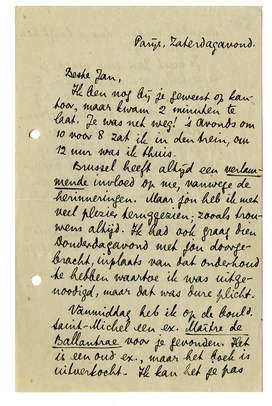 Parijs, Zaterdagavond.
Beste Jan,
Ik ben nog bij je geweest op kan-
toor, maar kwam 2 minuten te
laat. Je was net weg! 's Avonds om
10 voor 8 zat ik in den trein, om
12 uur was ik thuis.
Brussel heeft altijd een verlam-
mende invloed op me, vanwege de
herinneringen. Maar jou heb ik met
veel plezier teruggezien; zooals trou-
wens altijd. Ik had ook graag dien
Donderdagavond met jou doorge-
bracht, inplaats van dat onderhoud
te hebben waartoe ik was uitge-
noodigd, maar dat was bure plicht.
Vanmiddag heb ik op de boul.
Saint-Michel een ex. Maître de
Ballantrae voor je gevonden. Het
is een oud ex., maar het boek is
uitverkocht. Ik kan het je pas